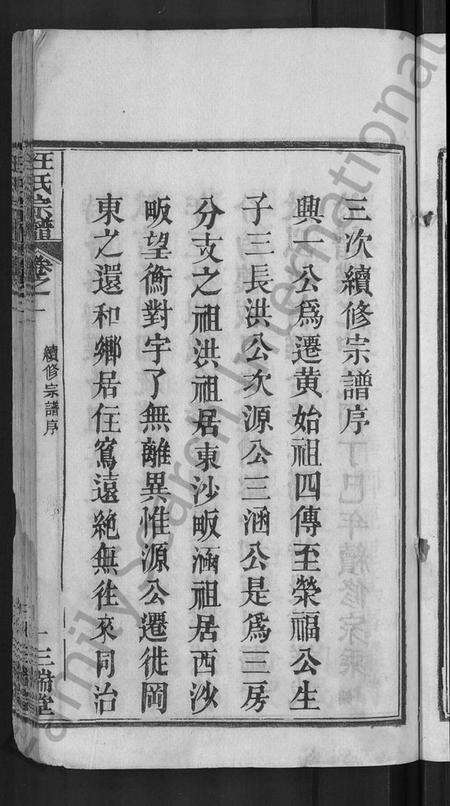 三次續修宗譜序
興一公爲遷黃始祖四傳至榮福公生
子三長洪公次源公三涵公是爲三房
分支之祖洪祖居東沙畈涵祖居西沙
畈望衡對宇了無離異惟源公遷徙岡
東之還和鄉居住寫遠絶無徃來同治
汪氏宗譜 卷之一
續修宗譜序
三瑞堂
丁巳年續修宗乘
FamilySearch International